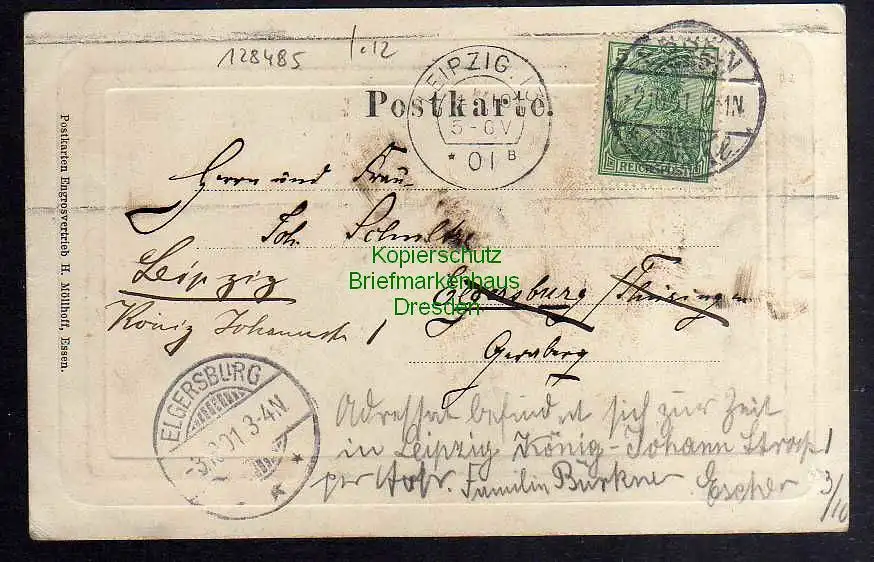 128485
1.12
LEIPZIG
5-6V
* 01 B
REICHSPOST
Postkarte.
Herrn und Frau
Joh. Schultze
Elgersburg / Thüringen
Gernberg
Leipzig
König Johannstr 1
Kopierschutz
Briefmarkenhaus
Dresden
Postkarten Engrosvertrieb H. Möllhoff, Essen.
ELGERSBURG
-3.10.01 3-4N
Adressat befindet sich zur Zeit
in Leipzig König-Johann Strasse 1
per Adr. Familie Bürkner
Escher
3/10